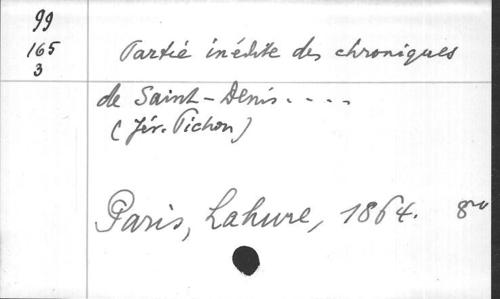 99
165
3
Partie inédite des chroniques
de Saint-Denis....
(Jér. Pichon)
Paris, Lahure, 1864. 8vo